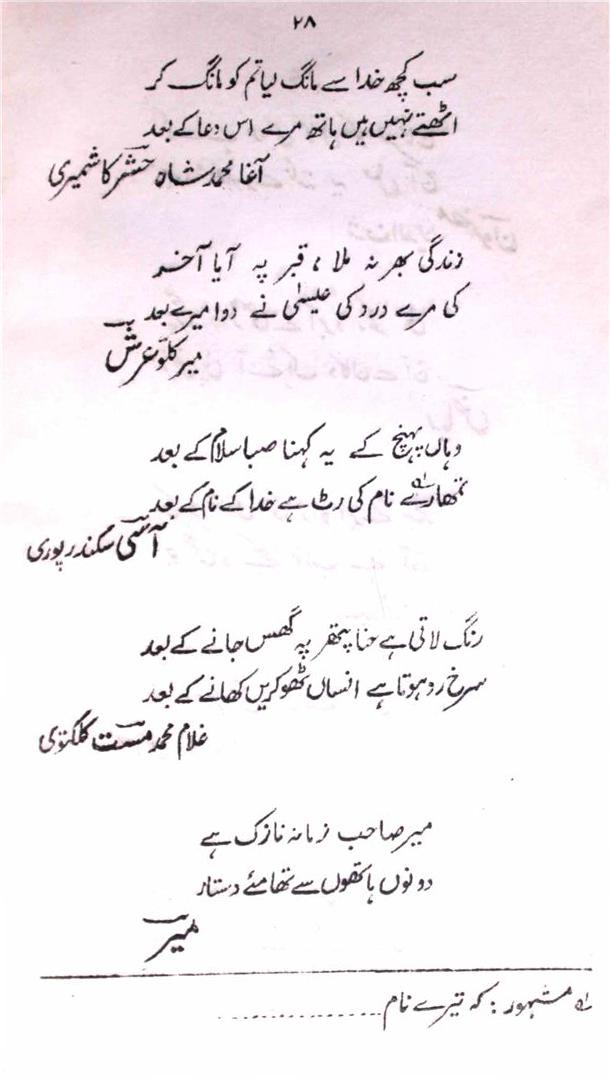 ۲۸
سب کچھ خدا سے مانگ لیا تم کو مانگ کر
اٹھتے نہیں ہیں ہاتھ مرے اس دعا کے بعد
آغا محمد شاہ حشر کاشمیری
زندگی بھر نہ ملا ، قبر پہ آیا آخر
کی مرے درد کی عیسٰی نے دوا میرے بعد
میر کلو عرش
وہاں پہنچ کے یہ کہنا صبا سلام کے بعد
تمھارے لہ نام کی رٹ ہے خدا کے نام کے بعد
آسی سکندر پوری
رنگ لاتی ہے حنا پتھر پہ گھس جانے کے بعد
سرخ رو ہوتا ہے انساں ٹھوکریں کھانے کے بعد
غلام محمد مست کلکتوی
میر صاحب زمانہ نازک ہے
دونوں ہاتھوں سے تھامئے دستار
میر
لہ مشہور : کہ تیرے نام ................